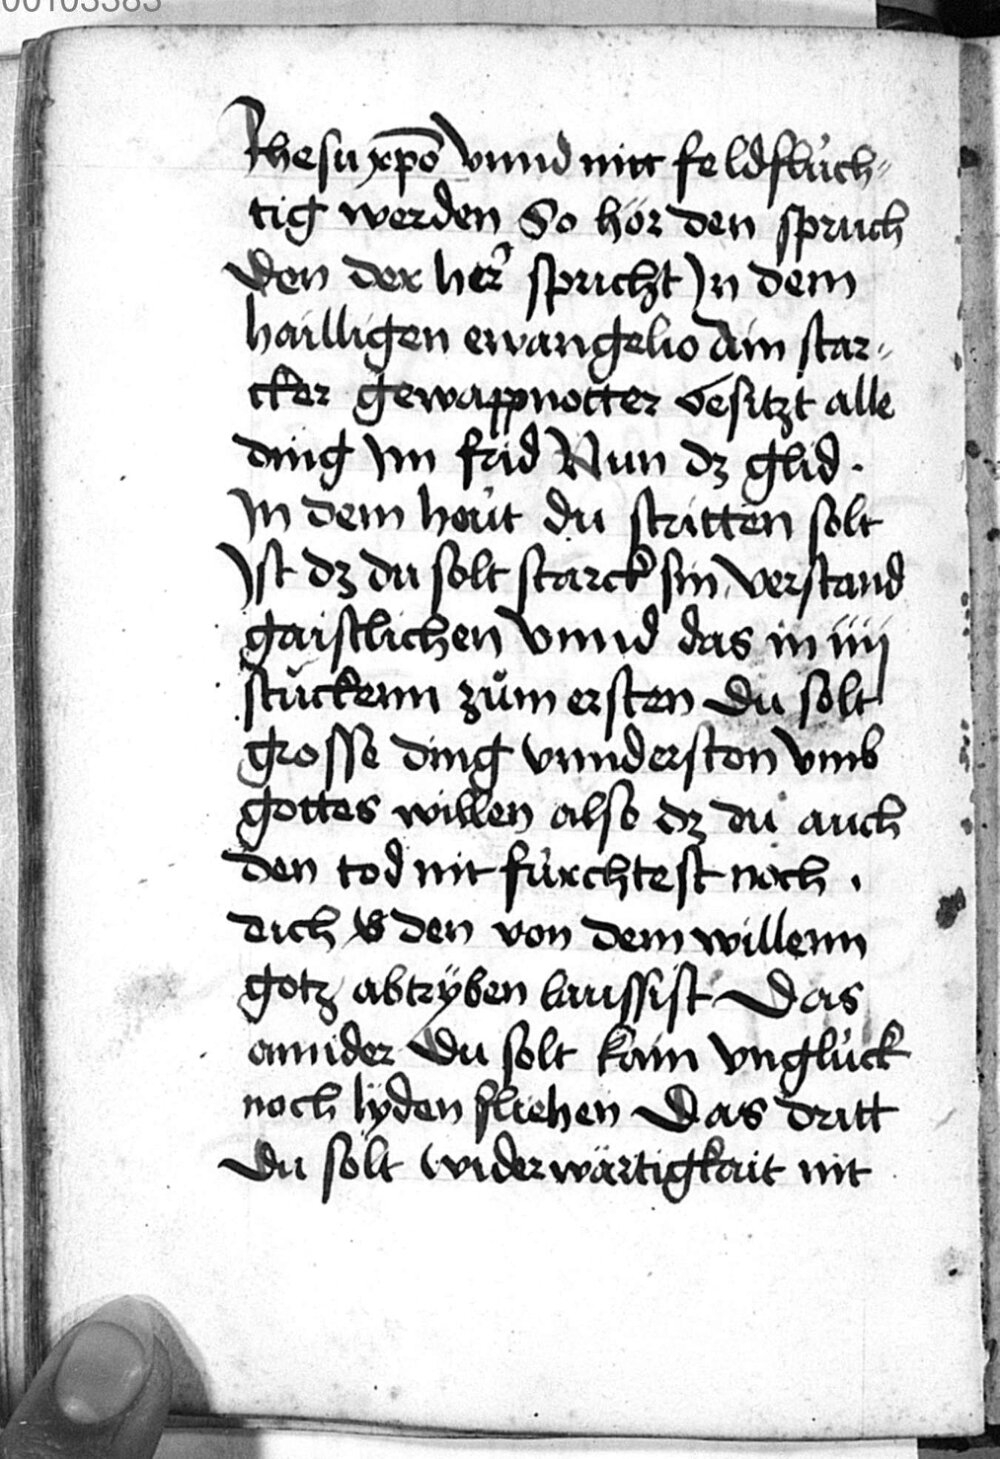 00103383
Jhesu xpo vnnd nitt feldflúch„
tig werden So hör den spruch
Den der her spricht Jn dem
hailligen ewangelio Ain star„
cker gewappnotter besitzt alle
ding Jm frid Nun dz glid .
Jn dem hoút du stritten solt
Jst dz du solt starck sin verstand
gaistlichen vnnd das in iiij
stúckenn zům ersten Du solt
grosse ding vnnderston vmb
gottes willen also dz du auch
den tod nit fúrchtest noch .
dich den von dem willenn
gotz abtrÿben laussist Das
annder Du solt kain vnglúck
noch lÿden fliehen Das dritt
Du solt widerwärtigkait nit